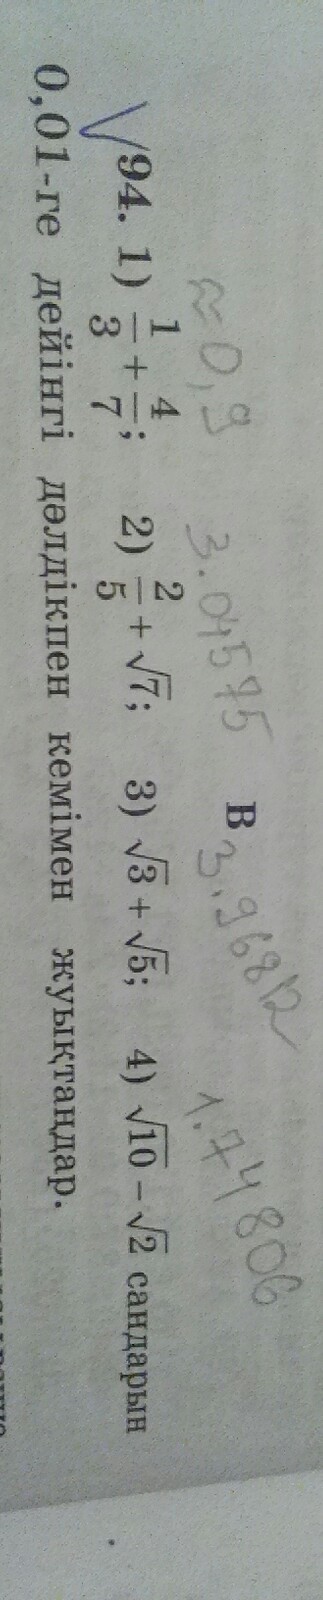 ≈0,9 3.04575 3.96812 1.74806
В
94. 1) 1/3 + 4/7; 2) 2/5 + √7; 3) √3 + √5; 4) √10 − √2 сандарын
0,01-ге дейінгі дәлдікпен кемімен жуықтаңдар.